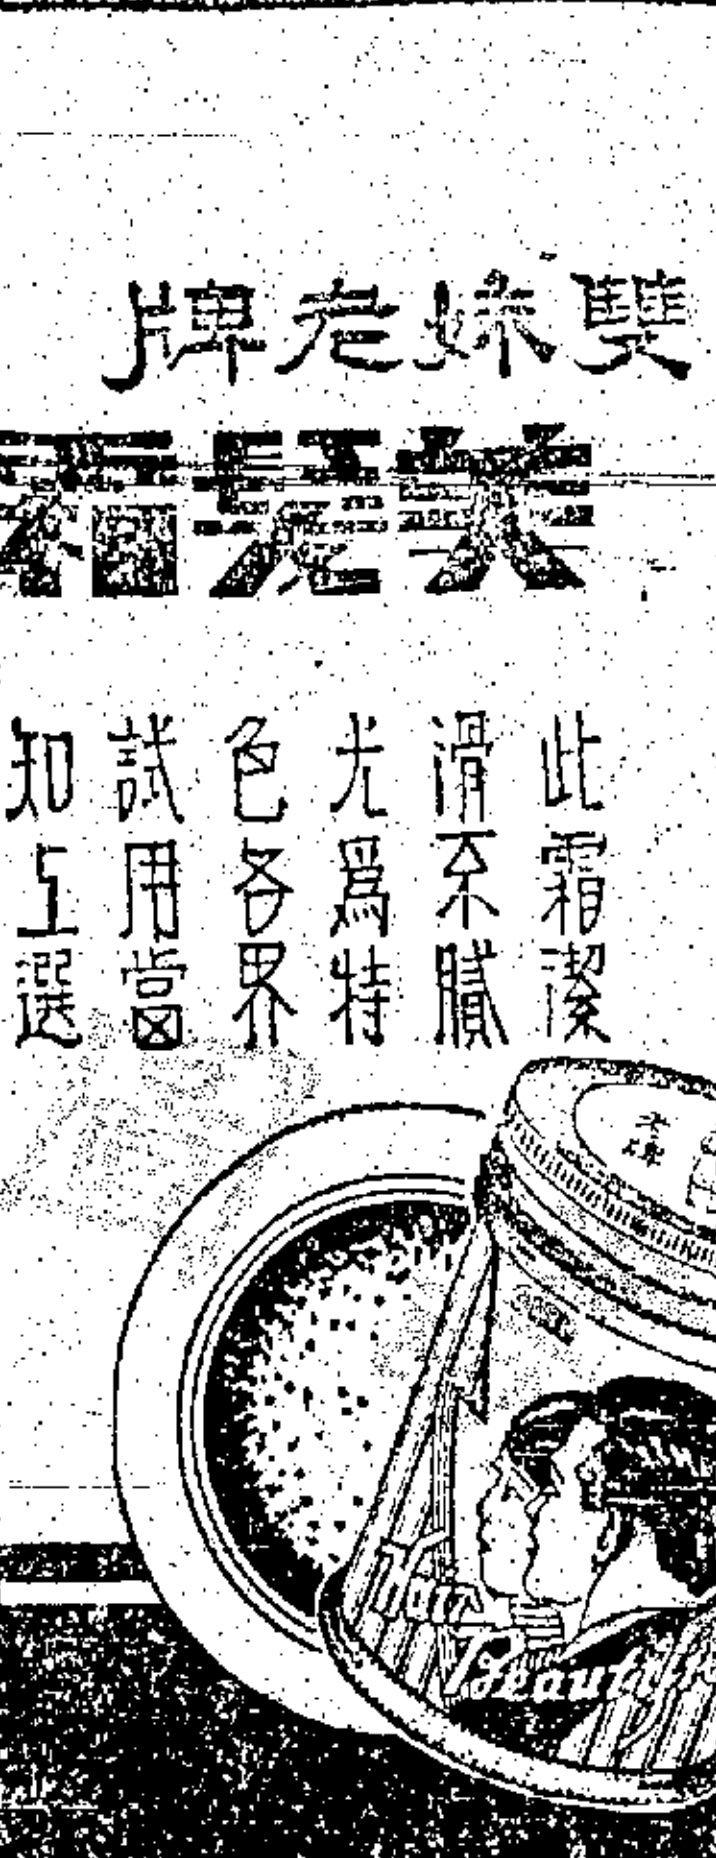 雙妹老牌
美髮霜
此霜潔
滑不膩
光爲特
色各界
試用當
知上選
老牌
Hair